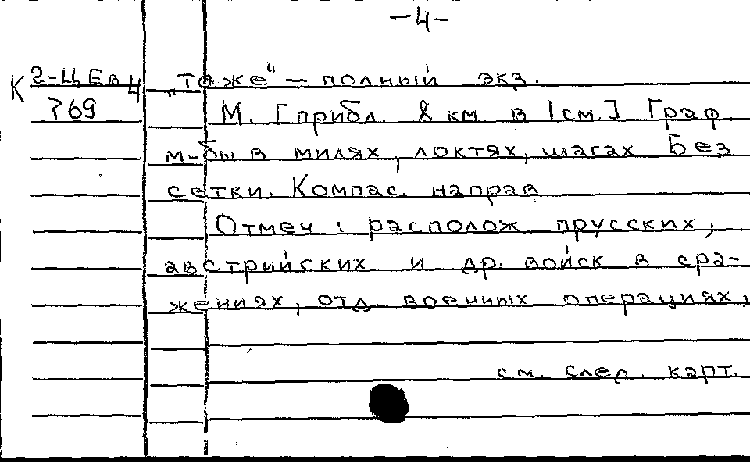 -4-
К 2-Ц Ев 4 „Тоже“ — полный экз.
769 М. [прибл. 8 км. в 1 см.] Граф
м-бы в милях, локтях, шагах Без
сетки. Компас. направ
Отмеч: располож прусских,
австрийских и др. войск в сра-
жениях, отд военных операциях,
см. след. карт.